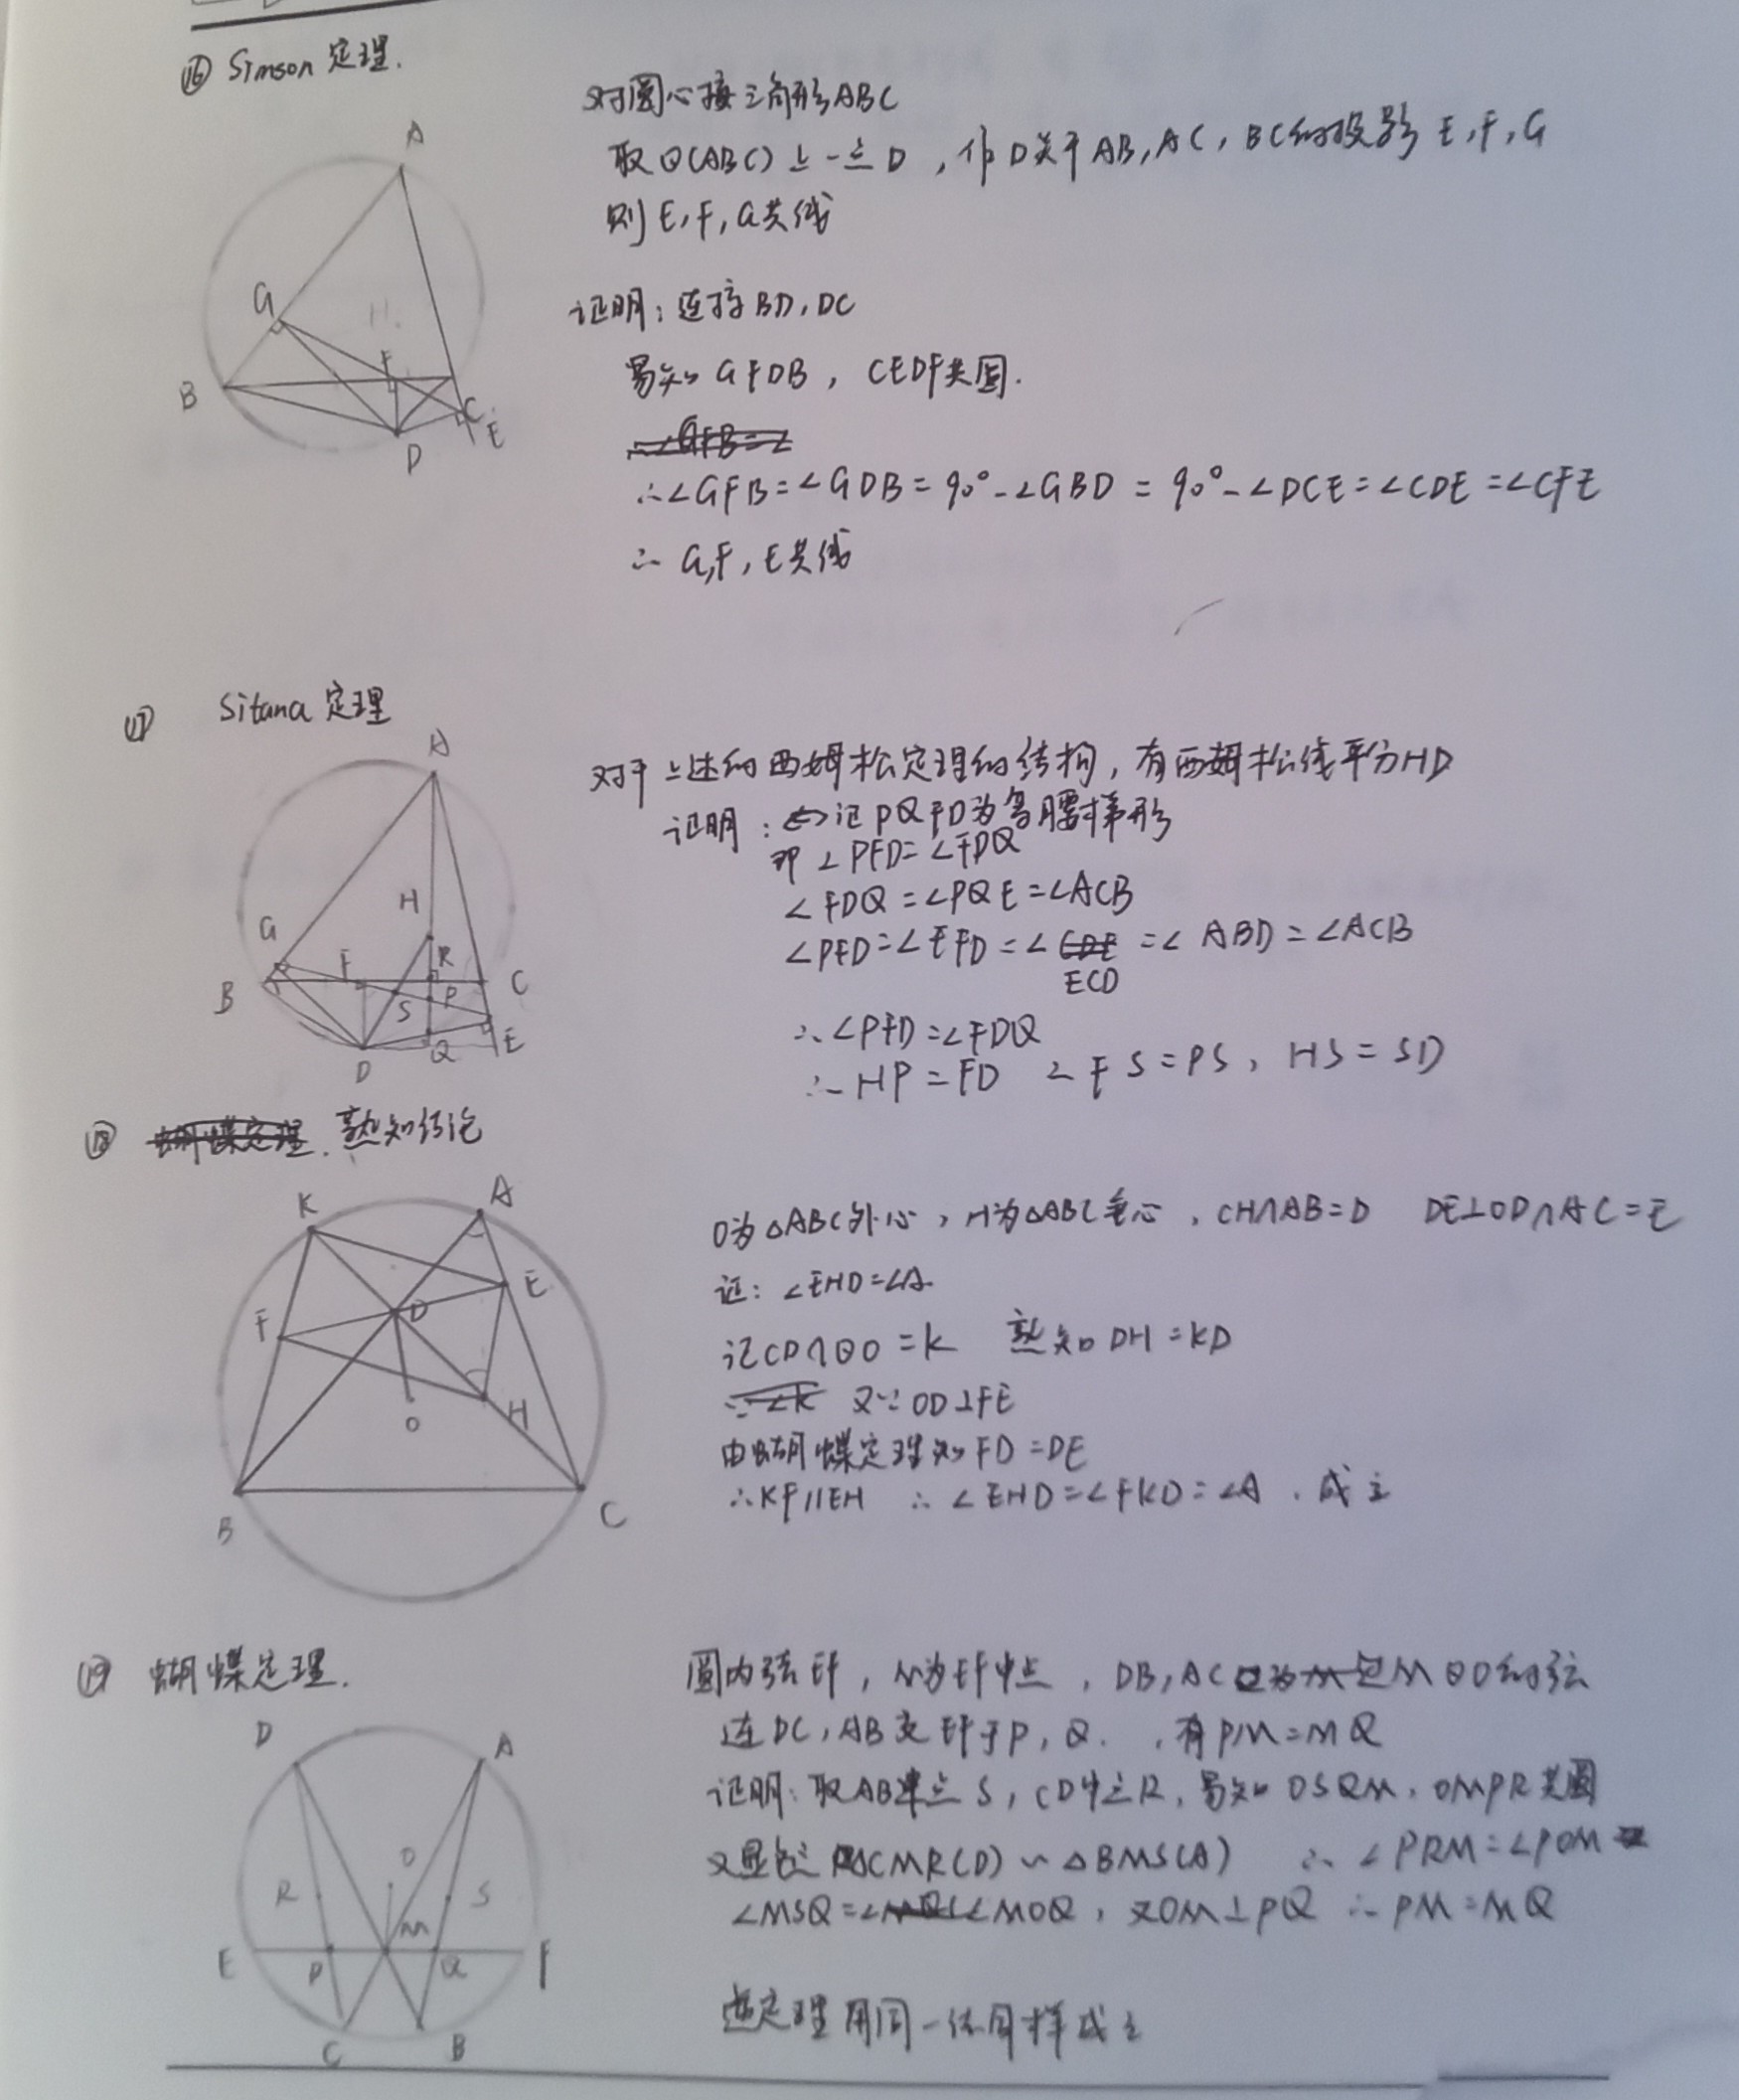 ⑯ Simson 定理.
对圆心接三角形ABC
取⊙(ABC)上一点D,作D关于AB,AC,BC的投影 E,F,G
则E,F,G共线
证明:连接BD,DC
易知GFDB,CEDF共圆.
∴∠GFB=∠GDB=90°-∠GBD=90°-∠DCE=∠CDE=∠CFE
∴G,F,E共线
A
G
H.
F
B
C
E
D
⑰ Sitana 定理
对于上述的西姆松定理的结构,有西姆松线平分HD
证明:记PQFD为等腰梯形
即∠PFD=∠FDQ
∠FDQ=∠PQE=∠ACB
∠PFD=∠EFD=∠ECD=∠ABD=∠ACB
∴∠PFD=∠FDQ
∴HP=FD ∠FS=PS,HS=SD
A
H
G
F
R
B
S
P
C
D
Q
E
⑱ 蝴蝶定理. 熟知结论
O为△ABC外心,H为△ABC垂心,CH∩AB=D DE⊥OD∩AC=E
证:∠EHD=∠A.
记CD∩⊙O=K 熟知DH=KD
又∵OD⊥FE
由蝴蝶定理知FD=DE
∴KF//EH ∴∠EHD=∠FKD=∠A.成立
K
A
E
F
D
H
O
B
C
⑲ 蝴蝶定理.
圆内弦EF,M为EF中点,DB,AC 过M⊙O的弦
连DC,AB交EF于P,Q.,有PM=MQ
证明:取AB中点S,CD中点R,易知OSQM,OMPR共圆
又显然△CMR(D)∽△BMS(A) ∴∠PRM=∠POM=
∠MSQ=∠MOQ,又OM⊥PQ ∴PM=MQ
逆定理用同一法同样成立
D
A
O
R
S
M
E
P
Q
F
C
B